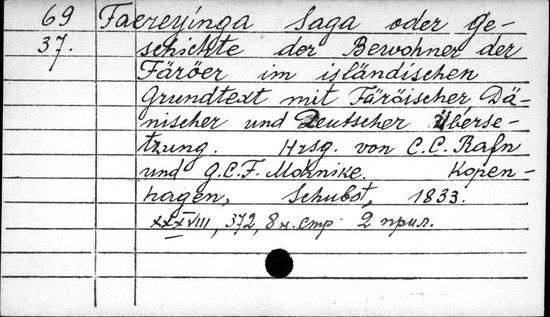 69 Faereyinga Saga oder Ge-
37. schichte der Bewohner der
Färöer im isländischen
Grundtext mit Färöischer Dä-
nischer und Deutscher Überse-
tzung. Hrsg. von C.C. Rafn
und G.C.F. Mohnike. Kopen-
hagen, Schubot, 1833.
XXXVIII, 372, 8 н. стр. 2 прил.